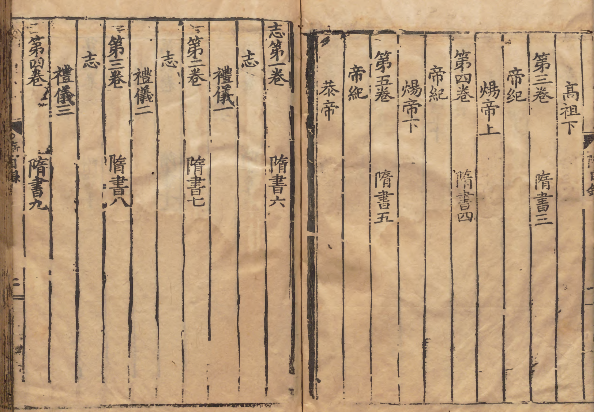 高祖下
第三卷 隋書三
帝紀
煬帝上
第四卷 隋書四
帝紀
煬帝下
第五卷 隋書五
帝紀
恭帝
志第一卷 隋書六
志
禮儀一
第二卷 隋書七
志
禮儀二
第三卷 隋書八
志
禮儀三
第四卷 隋書九